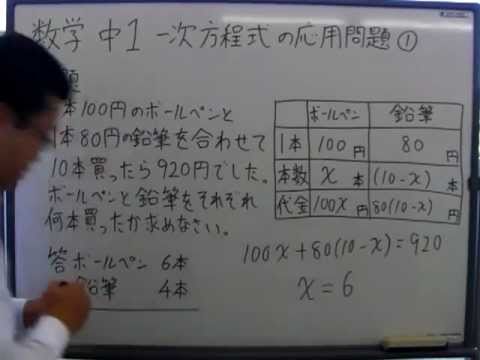 数学 中1 一次方程式の応用問題①
題
本100円のボールペンと
1本80円の鉛筆を合わせて
10本買ったら920円でした。
ボールペンと鉛筆をそれぞれ
何本買ったか求めなさい。
答 ボールペン 6本
鉛筆 4本
ボールペン 鉛筆
1本 100円 80円
本数 x本 (10-x)本
代金 100x円 80(10-x)円
100x+80(10-x)=920
x=6